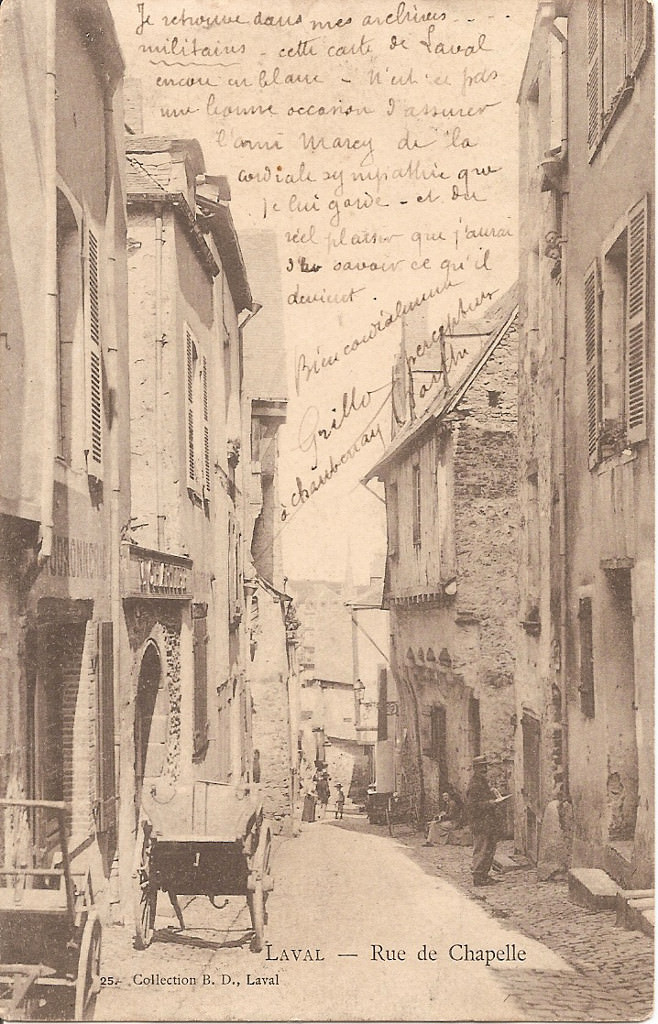 Je retrouve dans mes archives - - - -
militaires - cette carte de Laval
encore en blanc - N'est-ce pas
une bonne occasion d'assurer
l'ami Marcy de la
cordiale sympathie que
je lui garde - et du
réel plaisir que j'aurai
de savoir ce qu'il
devient.
Bien cordialement
Grillo percepteur
à Chambenay
LAVAL — Rue de Chapelle
25.- Collection B. D., Laval